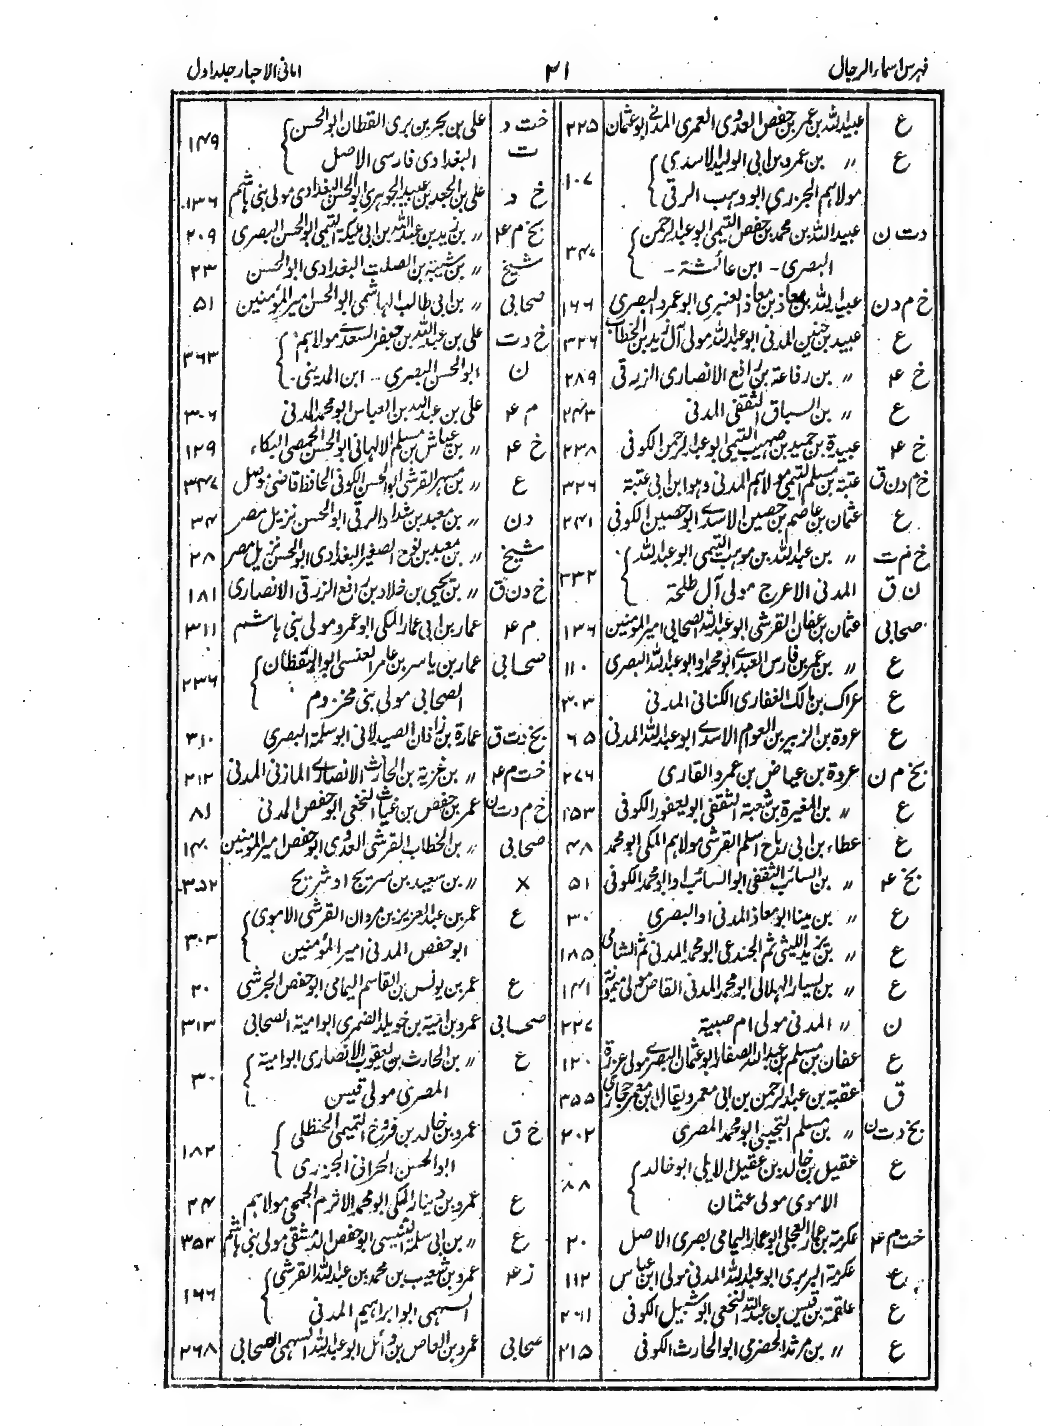 فہرس اسماء الرجال ۳۱ امانی الاحبار جلد اول
ع عبیداللہ بن عمر بن حفص العدوی العمری المدنی ابوعثمان ۲۲۵
ع 〃 بن عمرو بن ابی الولید الاسدی
مولاہم الجزری ابو وہب الرقی ۱۰۷
د ت ن عبیداللہ بن محمد بن حفص التیمی ابوعبدالرحمن
البصری - ابن عائشۃ - ۳۴۷
خ م د ن عبیداللہ بن معاذ بن معاذ العنبری ابوعمرو البصری ۱۶۶
ع عبید بن حنین المدنی ابوعبداللہ مولی آل زید بن الخطاب ۳۲۶
خ ۴ 〃 بن رفاعۃ بن رافع الانصاری الزرقی ۲۸۹
ع 〃 بن السباق الثقفی المدنی ۲۴۳
خ ۴ عبیدۃ بن حمید بن صہیب التیمی ابوعبدالرحمن الکوفی ۲۳۸
خ م د ن ق عتبۃ بن مسلم التیمی مولاہم المدنی وہو ابن ابی عتبۃ ۳۲۶
ع عثمان بن عاصم بن حصین الاسدی ابوحصین الکوفی ۲۴۱
خ م ت 〃 بن عبداللہ بن موہب التیمی ابوعبداللہ
ن ق المدنی الاعرج مولی آل طلحۃ ۲۳۲
صحابی عثمان بن عفان القرشی ابوعبداللہ الصحابی امیرالمؤمنین ۱۳۶
ع 〃 بن عمر بن فارس العبدی ابومحمد او ابوعبداللہ البصری ۱۱۰
ع عراک بن مالک الغفاری الکنانی المدنی ۳۰۳
ع عروۃ بن الزبیر بن العوام الاسدی ابوعبداللہ المدنی ۶۵
بخ م ن عروۃ بن عیاض بن عمرو القاری ۲۷۶
ع 〃 بن المغیرۃ بن شعبۃ الثقفی ابویعفور الکوفی ۱۵۳
ع عطاء بن ابی رباح اسلم القرشی مولاہم المکی ابومحمد ۴۸
بخ ۴ 〃 بن السائب الثقفی ابوالسائب او ابومحمد الکوفی ۵۱
ع 〃 بن مینا ابومعاذ المدنی او البصری ۳۰
ع 〃 بن یزید اللیثی ثم الجندعی ابومحمد المدنی ثم الشامی ۱۸۵
ع 〃 بن یسار الہلالی ابومحمد المدنی القاص مولی میمونۃ ۱۴۱
ن 〃 المدنی مولی ام صبیۃ ۲۲۷
ع عفان بن مسلم بن عبداللہ الصفار ابوعثمان البصری مولی عزرۃ ۱۲۰
ق عقبۃ بن عبدالرحمن بن ابی معمر ویقال ابن معمر حجازی ۳۵۵
بخ د ت ن 〃 بن مسلم التجیبی ابومحمد المصری ۲۰۲
ع عقیل بن خالد بن عقیل الایلی ابوخالد
الاموی مولی عثمان ۸۸
خت م ۴ عکرمۃ بن عمار العجلی ابوعمار الیمامی بصری الاصل ۲۰
ع عکرمۃ البربری ابوعبداللہ المدنی مولی ابن عباس ۱۱۲
ع علقمۃ بن قیس بن عبداللہ النخعی ابوشبیل الکوفی ۲۶۱
ع 〃 بن مرثد الحضرمی ابوالحارث الکوفی ۲۱۵
خت د علی بن بحر بن بری القطان ابوالحسن
ت البغدادی فارسی الاصل ۱۴۹
خ د علی بن الجعد بن عبید الجوہری ابوالحسن البغدادی مولی بنی ہاشم ۱۳۶
بخ م ۴ 〃 بن زید بن عبداللہ بن ابی ملیکۃ التیمی ابوالحسن البصری ۲۰۹
شیخ 〃 بن شیبۃ بن الصلت البغدادی ابوالحسن ۲۳
صحابی 〃 بن ابی طالب الہاشمی ابوالحسن امیرالمؤمنین ۵۱
خ د ت علی بن عبداللہ بن جعفر السعدی مولاہم
ن ابوالحسن البصری - ابن المدینی - ۳۶۳
م ۴ علی بن عبداللہ بن العباس ابومحمد المدنی ۳۰۶
خ ۴ 〃 بن عیاش بن مسلم الالہانی ابوالحسن الحمصی البکاء ۱۲۹
ع 〃 بن مسہر القرشی ابوالحسن الکوفی الحافظ قاضی موصل ۳۴۷
د ن 〃 بن معبد بن شداد الرقی ابوالحسن نزیل مصر ۳۴
شیخ 〃 بن معبد بن نوح الصغیر البغدادی ابوالحسن نزیل مصر ۲۸
خ د ن ق 〃 بن یحیی بن خلاد بن رافع الزرقی الانصاری ۱۸۱
م ۴ عمار بن ابی عمار المکی ابوعمرو مولی بنی ہاشم ۳۱۱
صحابی عمار بن یاسر بن عامر العنسی ابوالیقظان
الصحابی مولی بنی مخزوم ۲۳۶
بخ د ت ق عمارۃ بن زاذان الصیدلانی ابوسلمۃ البصری ۳۱۰
خت م ۴ 〃 بن غزیۃ بن الحارث الانصاری المازنی المدنی ۲۱۲
خ م د ت ن عمر بن حفص بن غیاث النخعی ابوحفص المدنی ۸۱
صحابی 〃 بن الخطاب القرشی العدوی ابوحفص امیرالمؤمنین ۱۴۰
× 〃 بن سعید بن سریج او شریح ۳۵۲
ع عمر بن عبدالعزیز بن مروان القرشی الاموی
ابوحفص المدنی امیرالمؤمنین ۳۰۳
ع عمر بن یونس بن القاسم الیمامی ابوحفص الجرشی ۲۰
صحابی عمرو بن امیۃ بن خویلد الضمری ابوامیۃ الصحابی ۳۱۳
ع 〃 بن الحارث بن یعقوب الانصاری ابوامیۃ
المصری مولی قیس ۳۰
خ ق عمرو بن خالد بن فروخ التمیمی الحنظلی
ابوالحسن الحرانی الجزری ۱۸۲
ع عمرو بن دینار المکی ابومحمد الاثرم الجمحی مولاہم ۲۴
ع 〃 بن ابی سلمۃ التنیسی ابوحفص الدمشقی مولی بنی ہاشم ۳۵۳
ز ۴ عمرو بن شعیب بن محمد بن عبداللہ القرشی
السہمی ابوابراہیم المدنی ۱۶۶
صحابی عمرو بن العاص بن وائل ابوعبداللہ السہمی الصحابی ۲۶۸